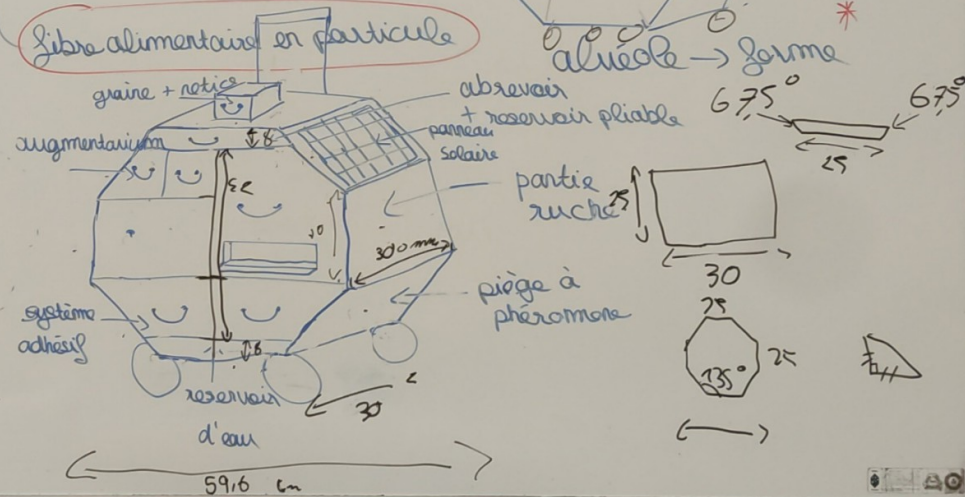 fibre alimentaire en particule
alvéole → forme
graine + notice
abrevoir
+ reservoir pliable
panneau
solaire
augmentarium
8
32
10
partie
ruche
300 mm
piège à
phéromone
système
adhésif
8
reservoir
d'eau
30
59,6 cm
67,5°
67,5°
25
25
30
25
25
135°